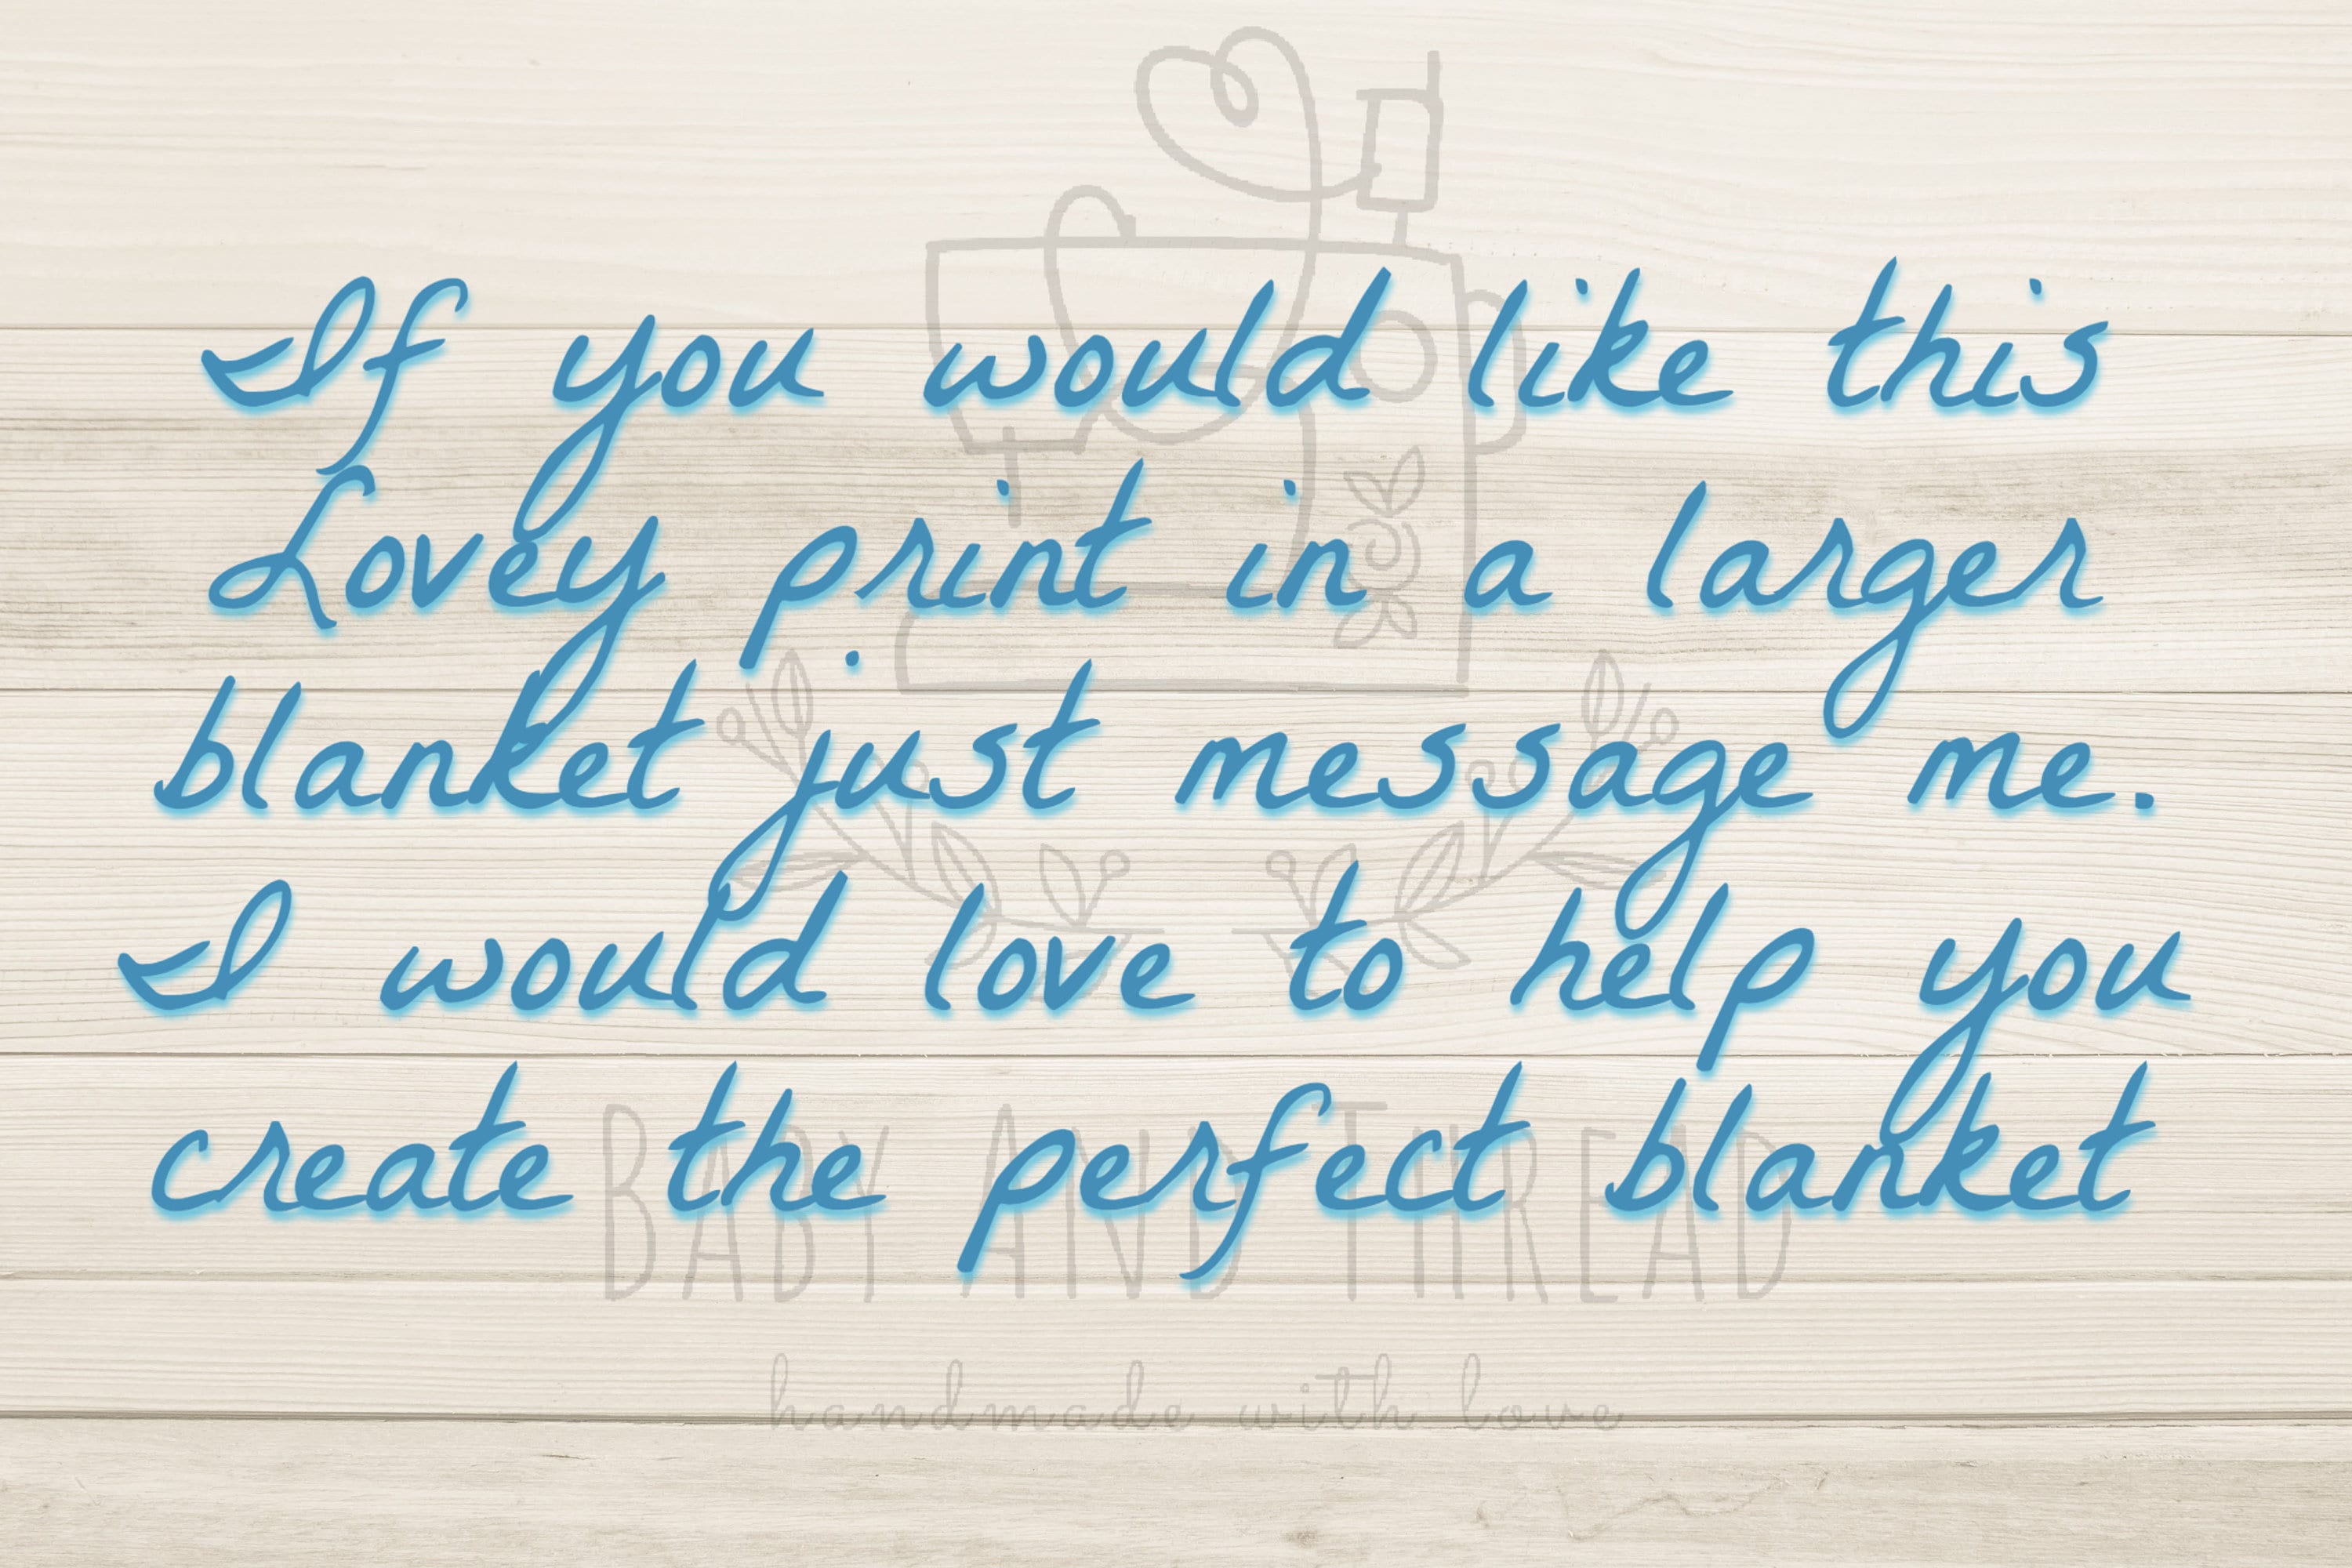 If you would like this
Lovey print in a larger
blanket just message me.
I would love to help you
create the perfect blanket
BABY AND THREAD
handmade with love